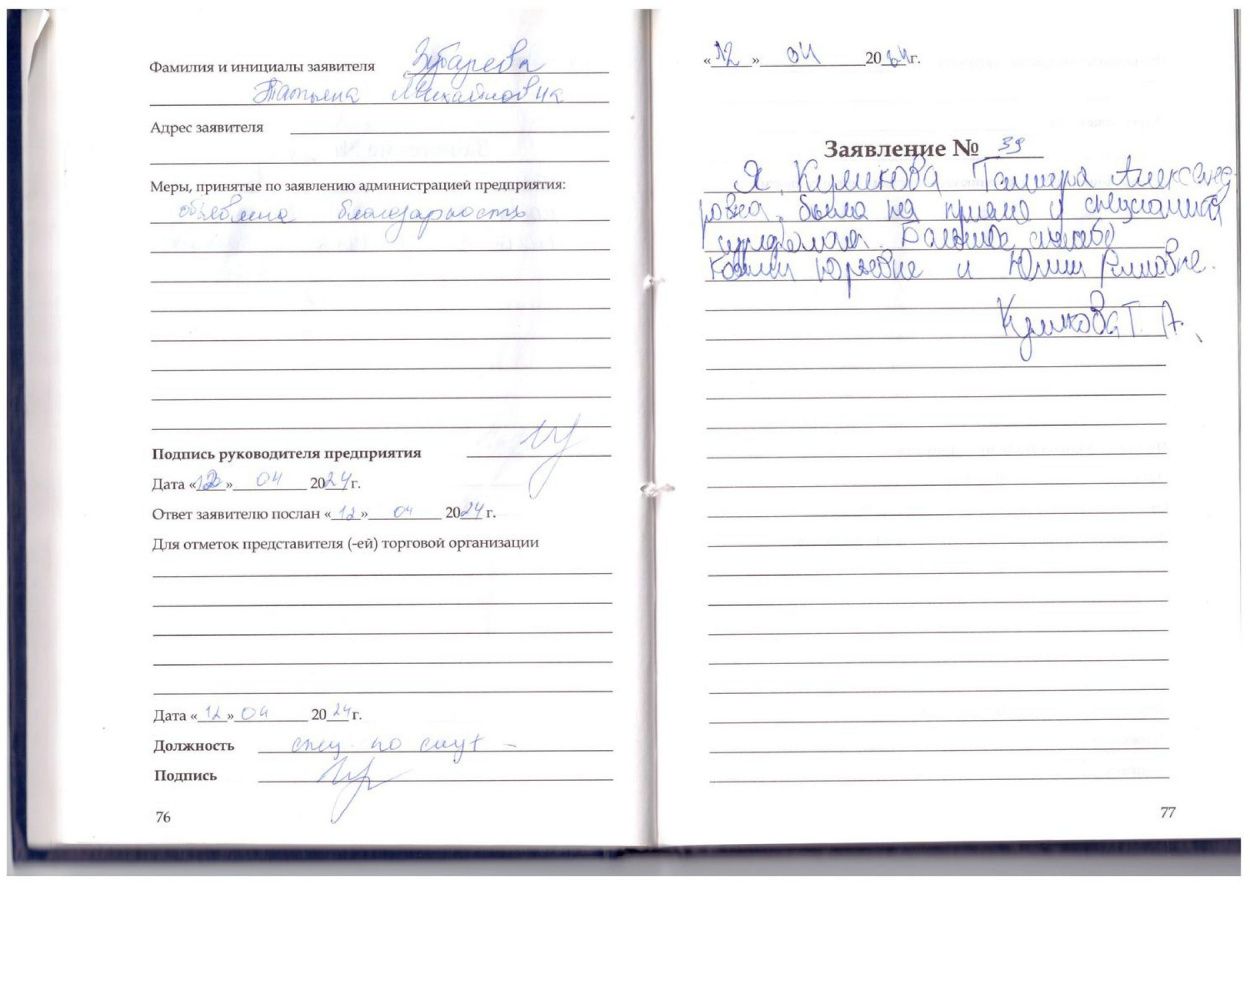 Фамилия и инициалы заявителя Зубарева
Татьяна Михайловна
Адрес заявителя
Меры, принятые по заявлению администрацией предприятия:
объявлена благодарность
Подпись руководителя предприятия
Дата «12» 04 2024 г.
Ответ заявителю послан «12» 04 2024 г.
Для отметок представителя (-ей) торговой организации
Дата «12» 04 2024 г.
Должность спец. по
Подпись
76
«12» 04 2024 г.
Заявление № 39
Я, Куликова Тамара Александ
ровна, была на приеме у специалиста
Большое спасибо
Юрьевне и Юлии
Куликова Т. А.
77